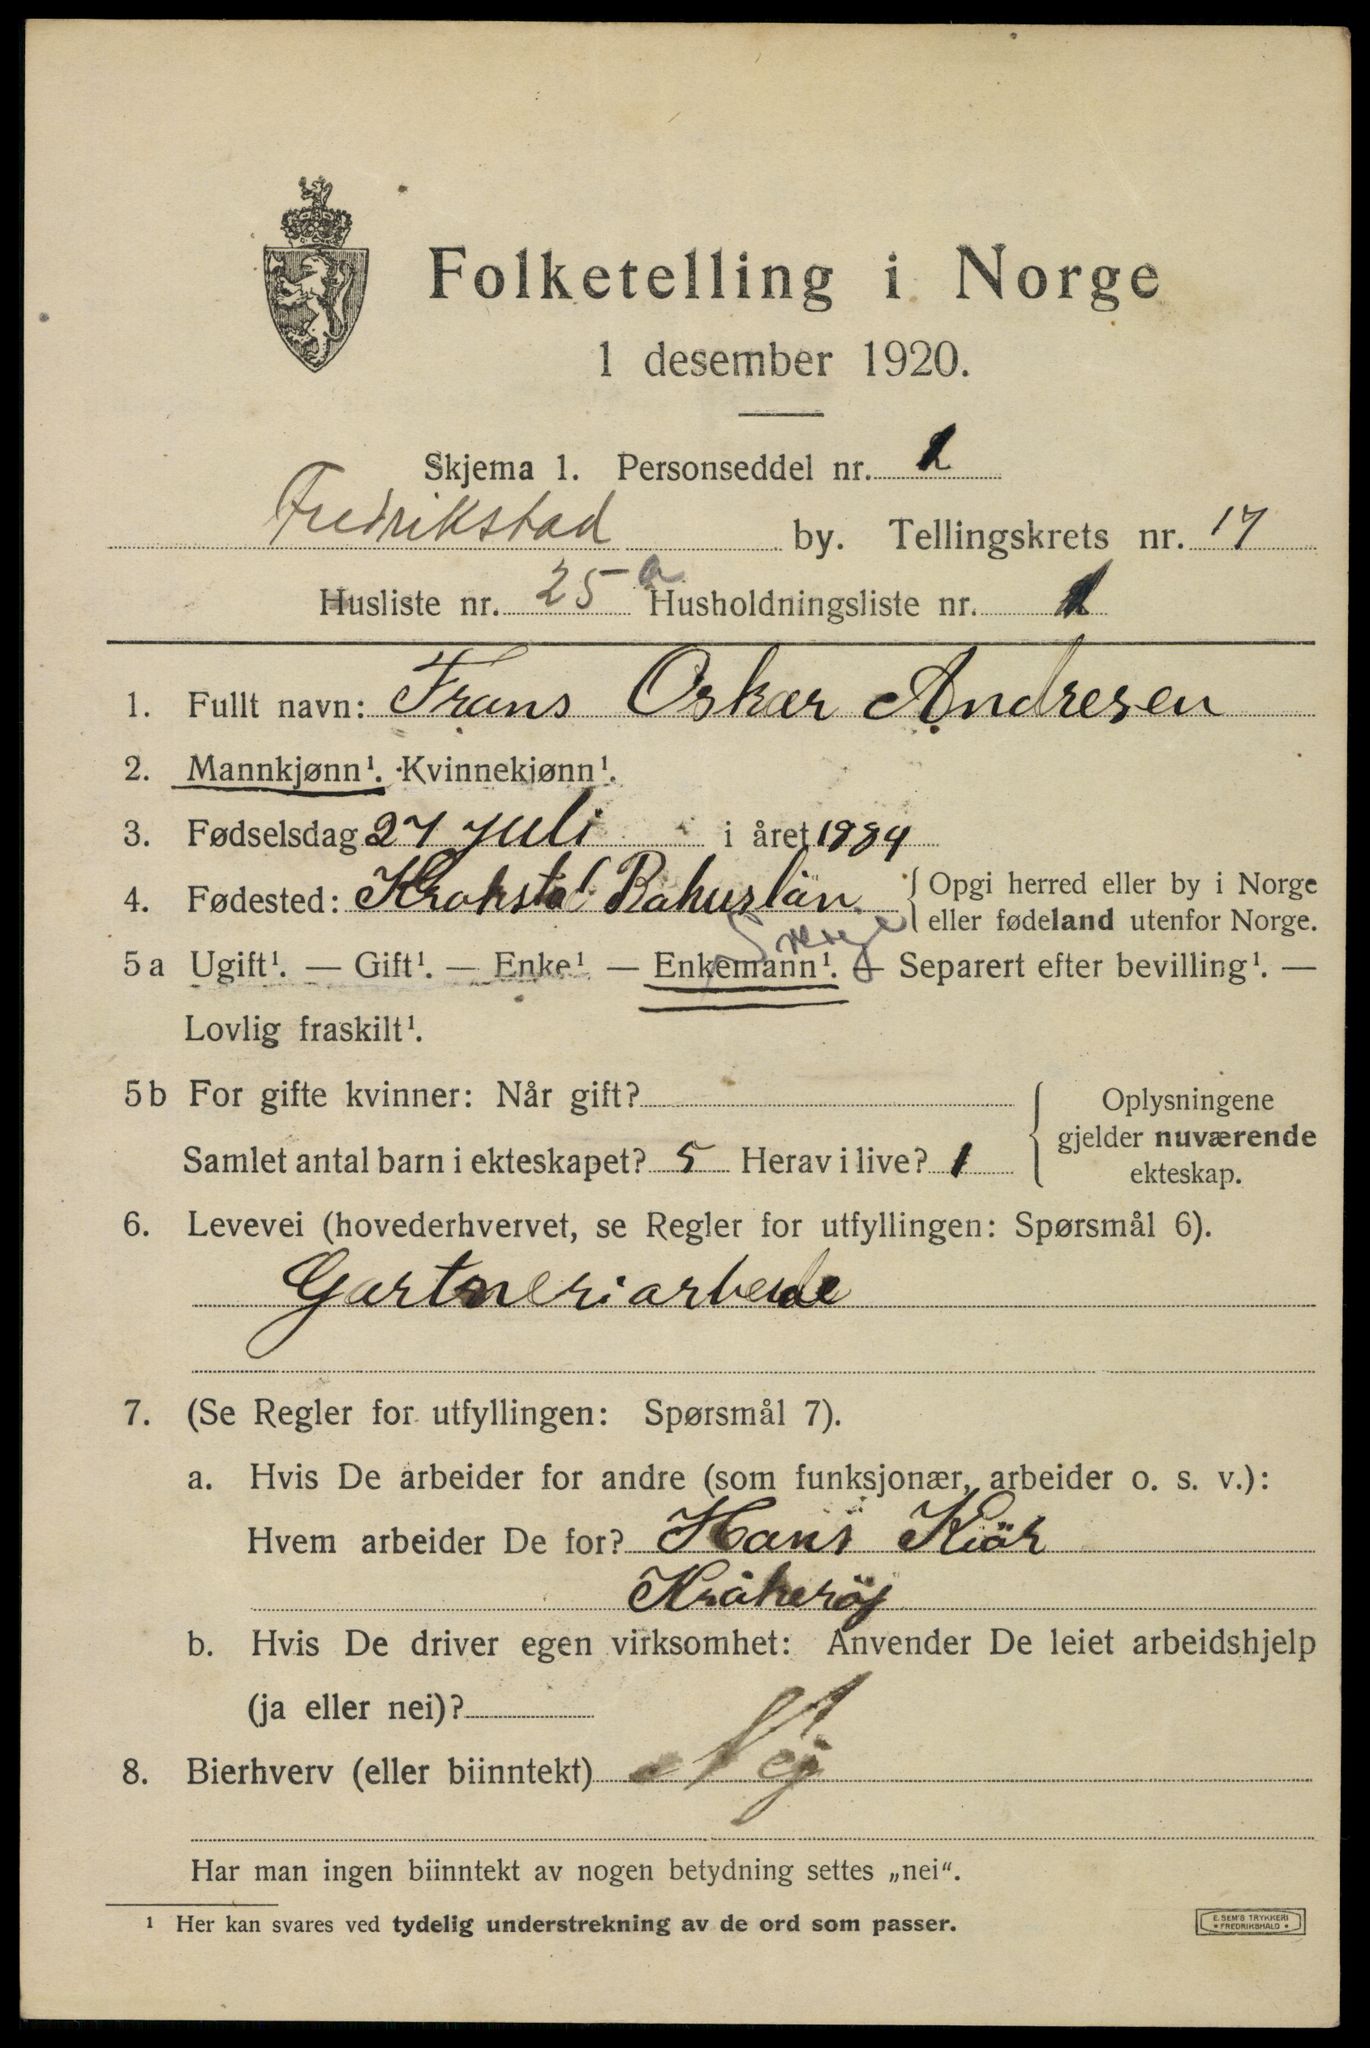 Folketelling i Norge
1 desember 1920.
Skjema 1. Personseddel nr. 1
Fredrikstad by. Tellingskrets nr. 17
Husliste nr. 25 a Husholdningsliste nr. 1
1. Fullt navn: Frans Oskar Andresen
2. Mannkjønn¹. Kvinnekjønn¹.
3. Fødselsdag 27 juli i året 1884
4. Fødested: Krokstad Bahuslän { Opgi herred eller by i Norge
eller fødeland utenfor Norge.
Sverge
5a Ugift¹. — Gift¹. — Enke¹ — Enkemann¹. — Separert efter bevilling¹. —
Lovlig fraskilt¹.
5b For gifte kvinner: Når gift?
Samlet antal barn i ekteskapet? 5 Herav i live? 1
Oplysningene
gjelder nuværende
ekteskap.
6. Levevei (hovederhvervet, se Regler for utfyllingen: Spørsmål 6).
Gartneriarbeide
7. (Se Regler for utfyllingen: Spørsmål 7).
a. Hvis De arbeider for andre (som funksjonær, arbeider o. s. v.):
Hvem arbeider De for? Hans Kiär
Kråkeröj
b. Hvis De driver egen virksomhet: Anvender De leiet arbeidshjelp
(ja eller nei)?
8. Bierhverv (eller biinntekt) Nej
Har man ingen biinntekt av nogen betydning settes „nei“.
¹ Her kan svares ved tydelig understrekning av de ord som passer.
E. SEM'S TRYKKERI
FREDRIKSHALD